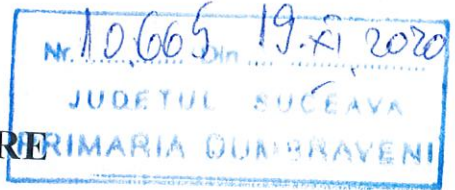 Nr. 10.665 Din 19.XI 2020
JUDETUL SUCEAVA
RE
PRIMARIA DUMBRAVENI